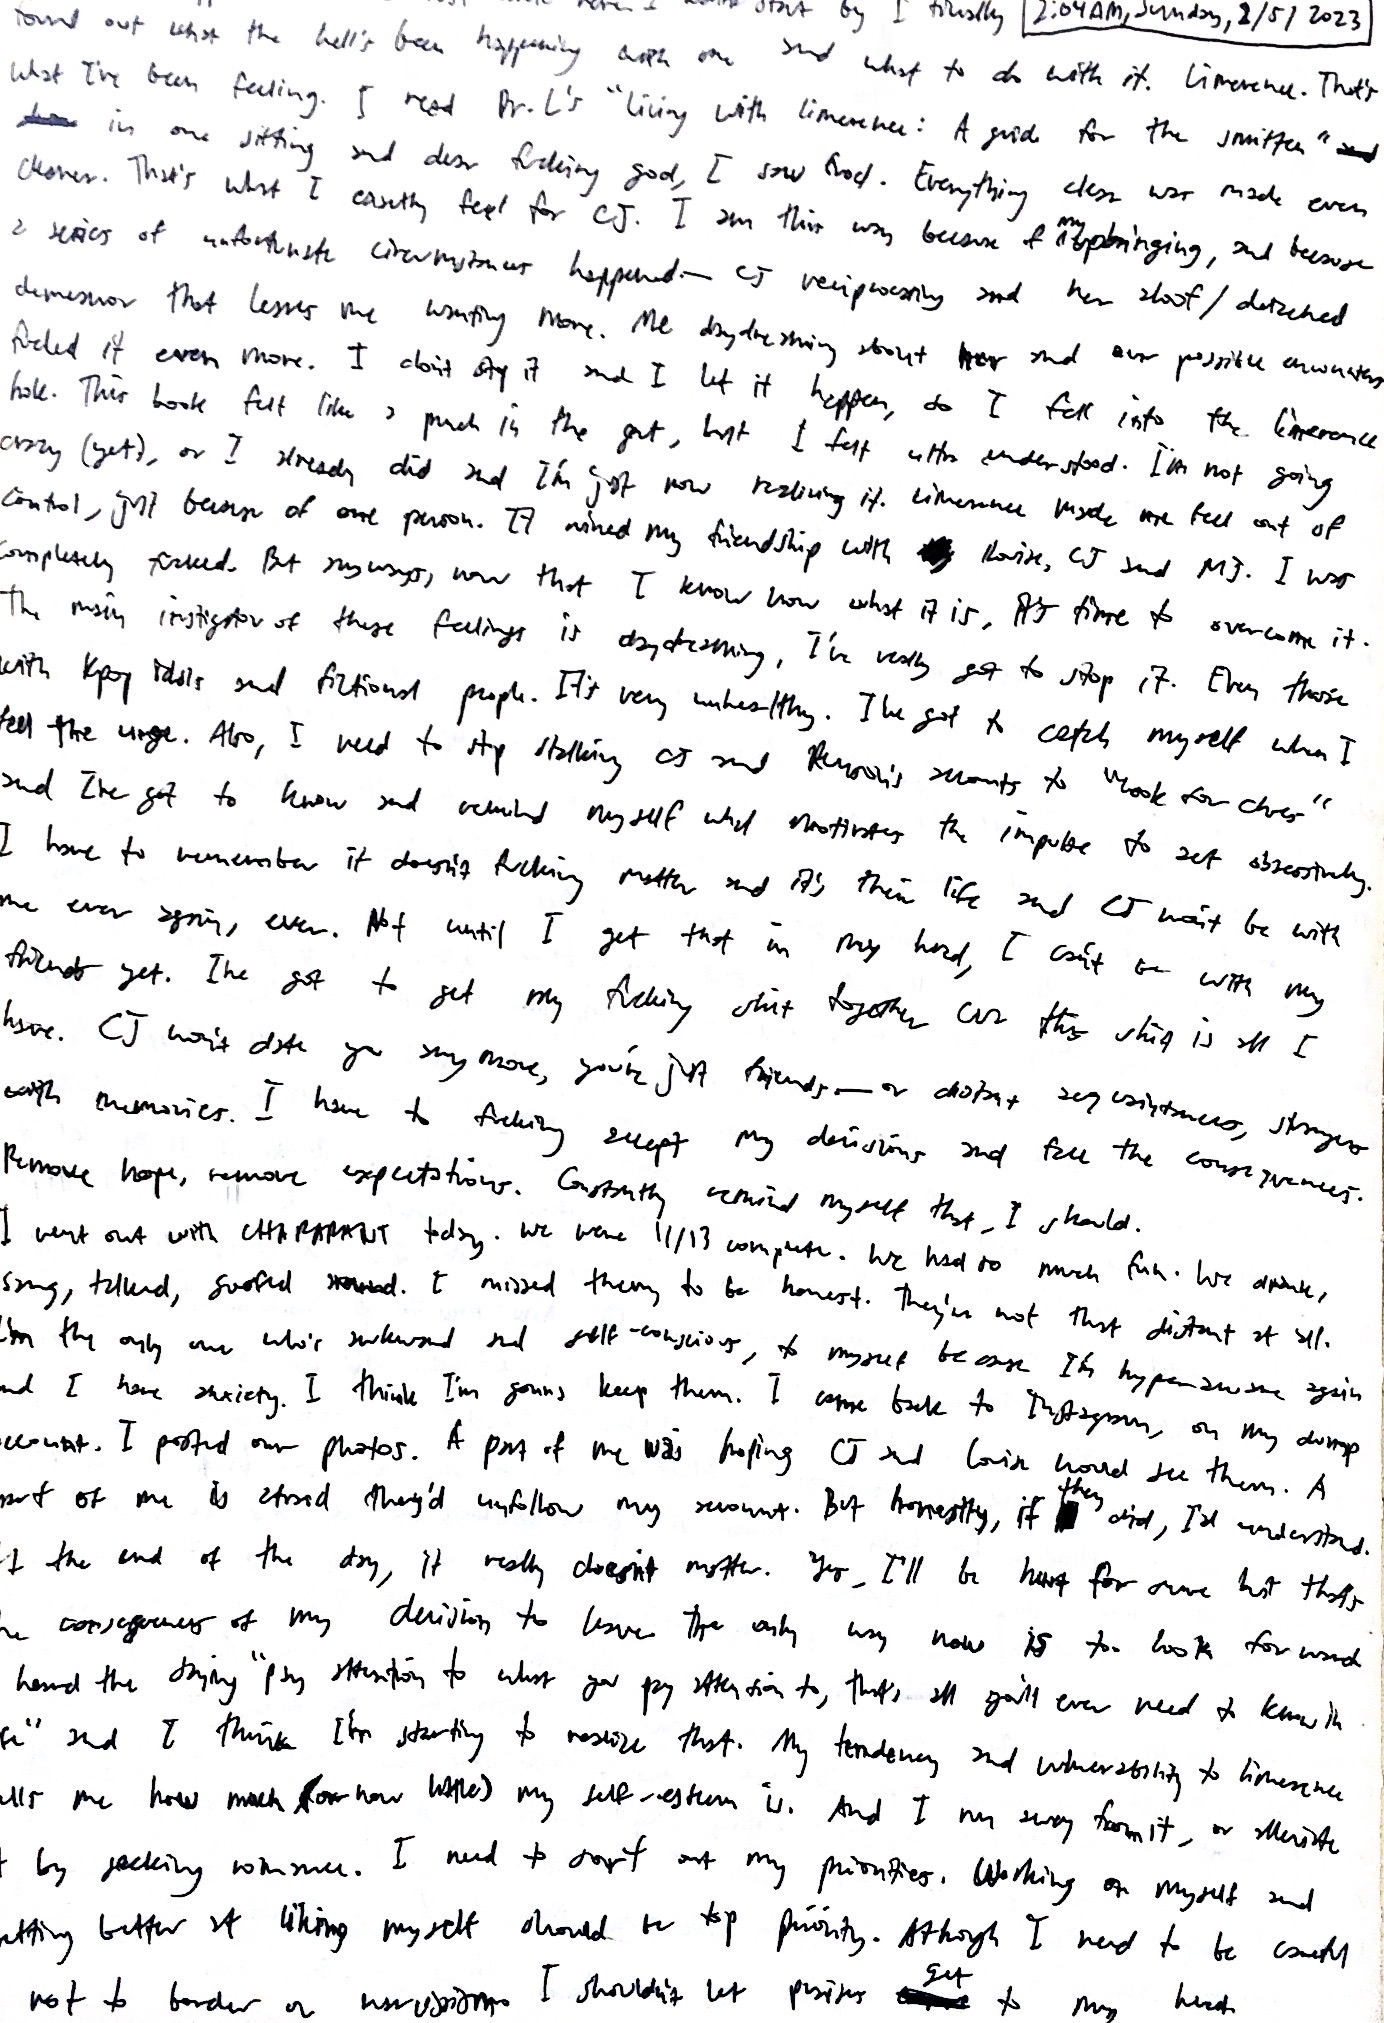 start by I finally 2:04AM, Sunday, 2/5/2023
found out what the hell's been happening with me and what to do with it. Limerence. That's
what I've been feeling. I read Dr. L's "Living with limerence: A guide for the smitten"
in one sitting and dear fucking god, I saw God. Everything clear was made even
clearer. That's what I exactly feel for CJ. I am this way because of my upbringing, and because
a series of unfortunate circumstances happened— CJ reciprocating and her aloof/detached
demeanor that leaves me wanting more. Me daydreaming about her and our possible encounters
fueled it even more. I don't stop it and I let it happen, so I fell into the limerence
hole. This book felt like a punch in the gut, but I felt understood. I'm not going
crazy (yet), or I already did and I'm just now realizing it. Limerence made me feel out of
control, just because of one person. It ruined my friendship with Louise, CJ and MJ. I was
completely fucked. But anyways, now that I know now what it is, it's time to overcome it.
The main instigator of these feelings is daydreaming, I've really got to stop it. Even those
with Kpop idols and fictional people. It's very unhealthy. I've got to catch myself when I
feel the urge. Also, I need to stop stalking CJ and accounts to "look for clues"
and I've got to know and remind myself what motivates the impulse to act obsessively.
I have to remember it doesn't fucking matter and it's their life and CJ won't be with
me ever again, ever. Not until I get that in my head, I can't be with my
friends yet. I've got to get my fucking shit together cuz this shit is all I
have. CJ won't date you anymore, you're just friends— or distant acquaintances, strangers
with memories. I have to fucking accept my decisions and face the consequences.
Remove hope, remove expectations. Constantly remind myself that, I should.
I went out with today. We were 11/13 complete. We had so much fun. We drank,
sang, talked, goofed around. I missed them to be honest. They're not that distant at all.
I'm the only one who's awkward and self-conscious, to myself because I'm hyperaware again
and I have anxiety. I think I'm gonna keep them. I came back to Instagram, on my dump
account. I posted our photos. A part of me was hoping CJ and Louise would see them. A
part of me is afraid they'd unfollow my account. But honestly, if they did, I'd understand.
At the end of the day, it really doesn't matter. Yes, I'll be hurt for sure but that's
the consequences of my decision to leave. The only way now is to look forward
heard the saying "pay attention to what you pay attention to, that's all you'll ever need to know in
life" and I think I'm starting to realize that. My tendency and vulnerability to limerence
tells me how much (or how little) my self-esteem is. And I run away from it, or alleviate
it by seeking romance. I need to sort out my priorities. Working on myself and
getting better at liking myself should be top priority. Although I need to be careful
not to border on narcissism. I shouldn't let praises get to my head